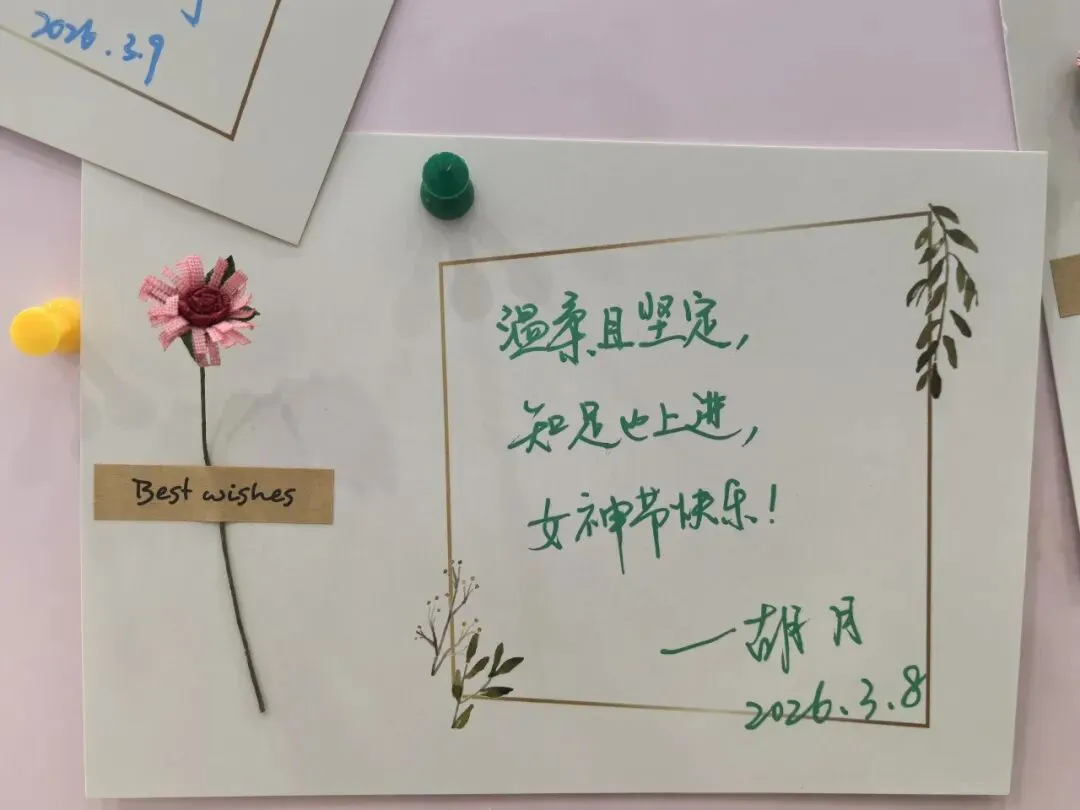 2026.3.9
温柔且坚定,
知足也上进,
女神节快乐!
Best wishes
—胡月
2026.3.8